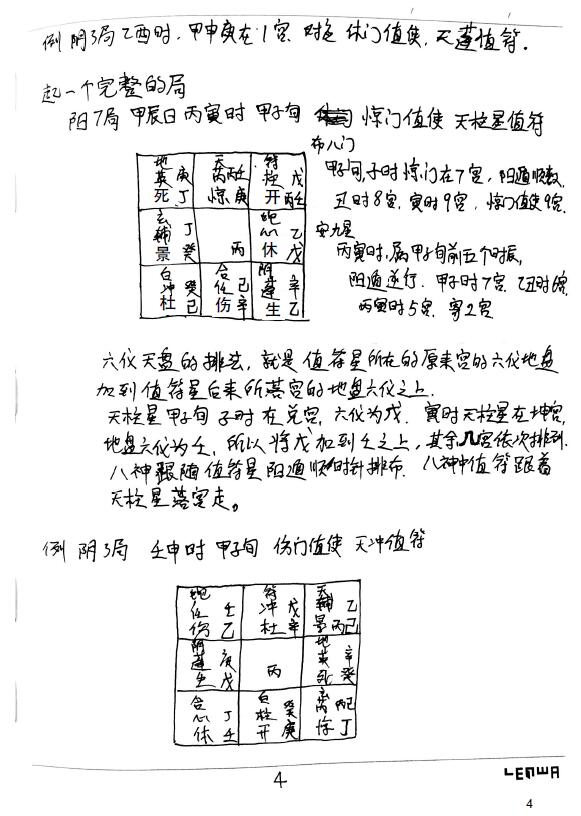 例 阴3局 乙酉时，甲申庚在1宫、时起 休门值使，天蓬值符。
起一个完整的局
阳7局 甲辰日 丙寅时 甲子旬 惊门值使 天柱星值符
布八门
甲子旬，子时惊门在7宫，阳遁顺数，
丑时8宫，寅时9宫，惊门值使9宫，
安九星
丙寅时，属甲子旬前五个时辰，
阳遁逆行，甲子时7宫，乙丑时6宫，
丙寅时5宫，寄2宫
地 庚 天 丙壬 符 戊
英 芮 柱
死 丁 惊 庚 开 丙壬
玄 丁 地 乙
辅 心
景 癸 丙 休 戊
白 癸 合 己 阴 辛
冲 任 蓬
杜 己 伤 辛 生 乙
六仪天盘的排法，就是值符星所在的原来宫的六仪地盘
加到值符星后来所落宫的地盘六仪之上.
天柱星甲子旬子时在兑宫，六仪为戊. 寅时天柱星在坤宫，
地盘六仪为壬，所以将戊加到壬之上，其余几宫依次排列.
八神跟随值符星阳遁顺时针排布. 八神中值符跟着
天柱星落宫走。
例 阴3局 壬申时 甲子旬 伤门值使 天冲值符
壬 符 戊 天 乙
任 冲 辅
伤 乙 杜 辛 景 丙己
阴 庚 地 辛
蓬 英
生 戊 丙 死 癸
合 丁 白 癸 玄 丙己
心 柱 芮
休 壬 开 庚 惊 丁
4
LENWA
4